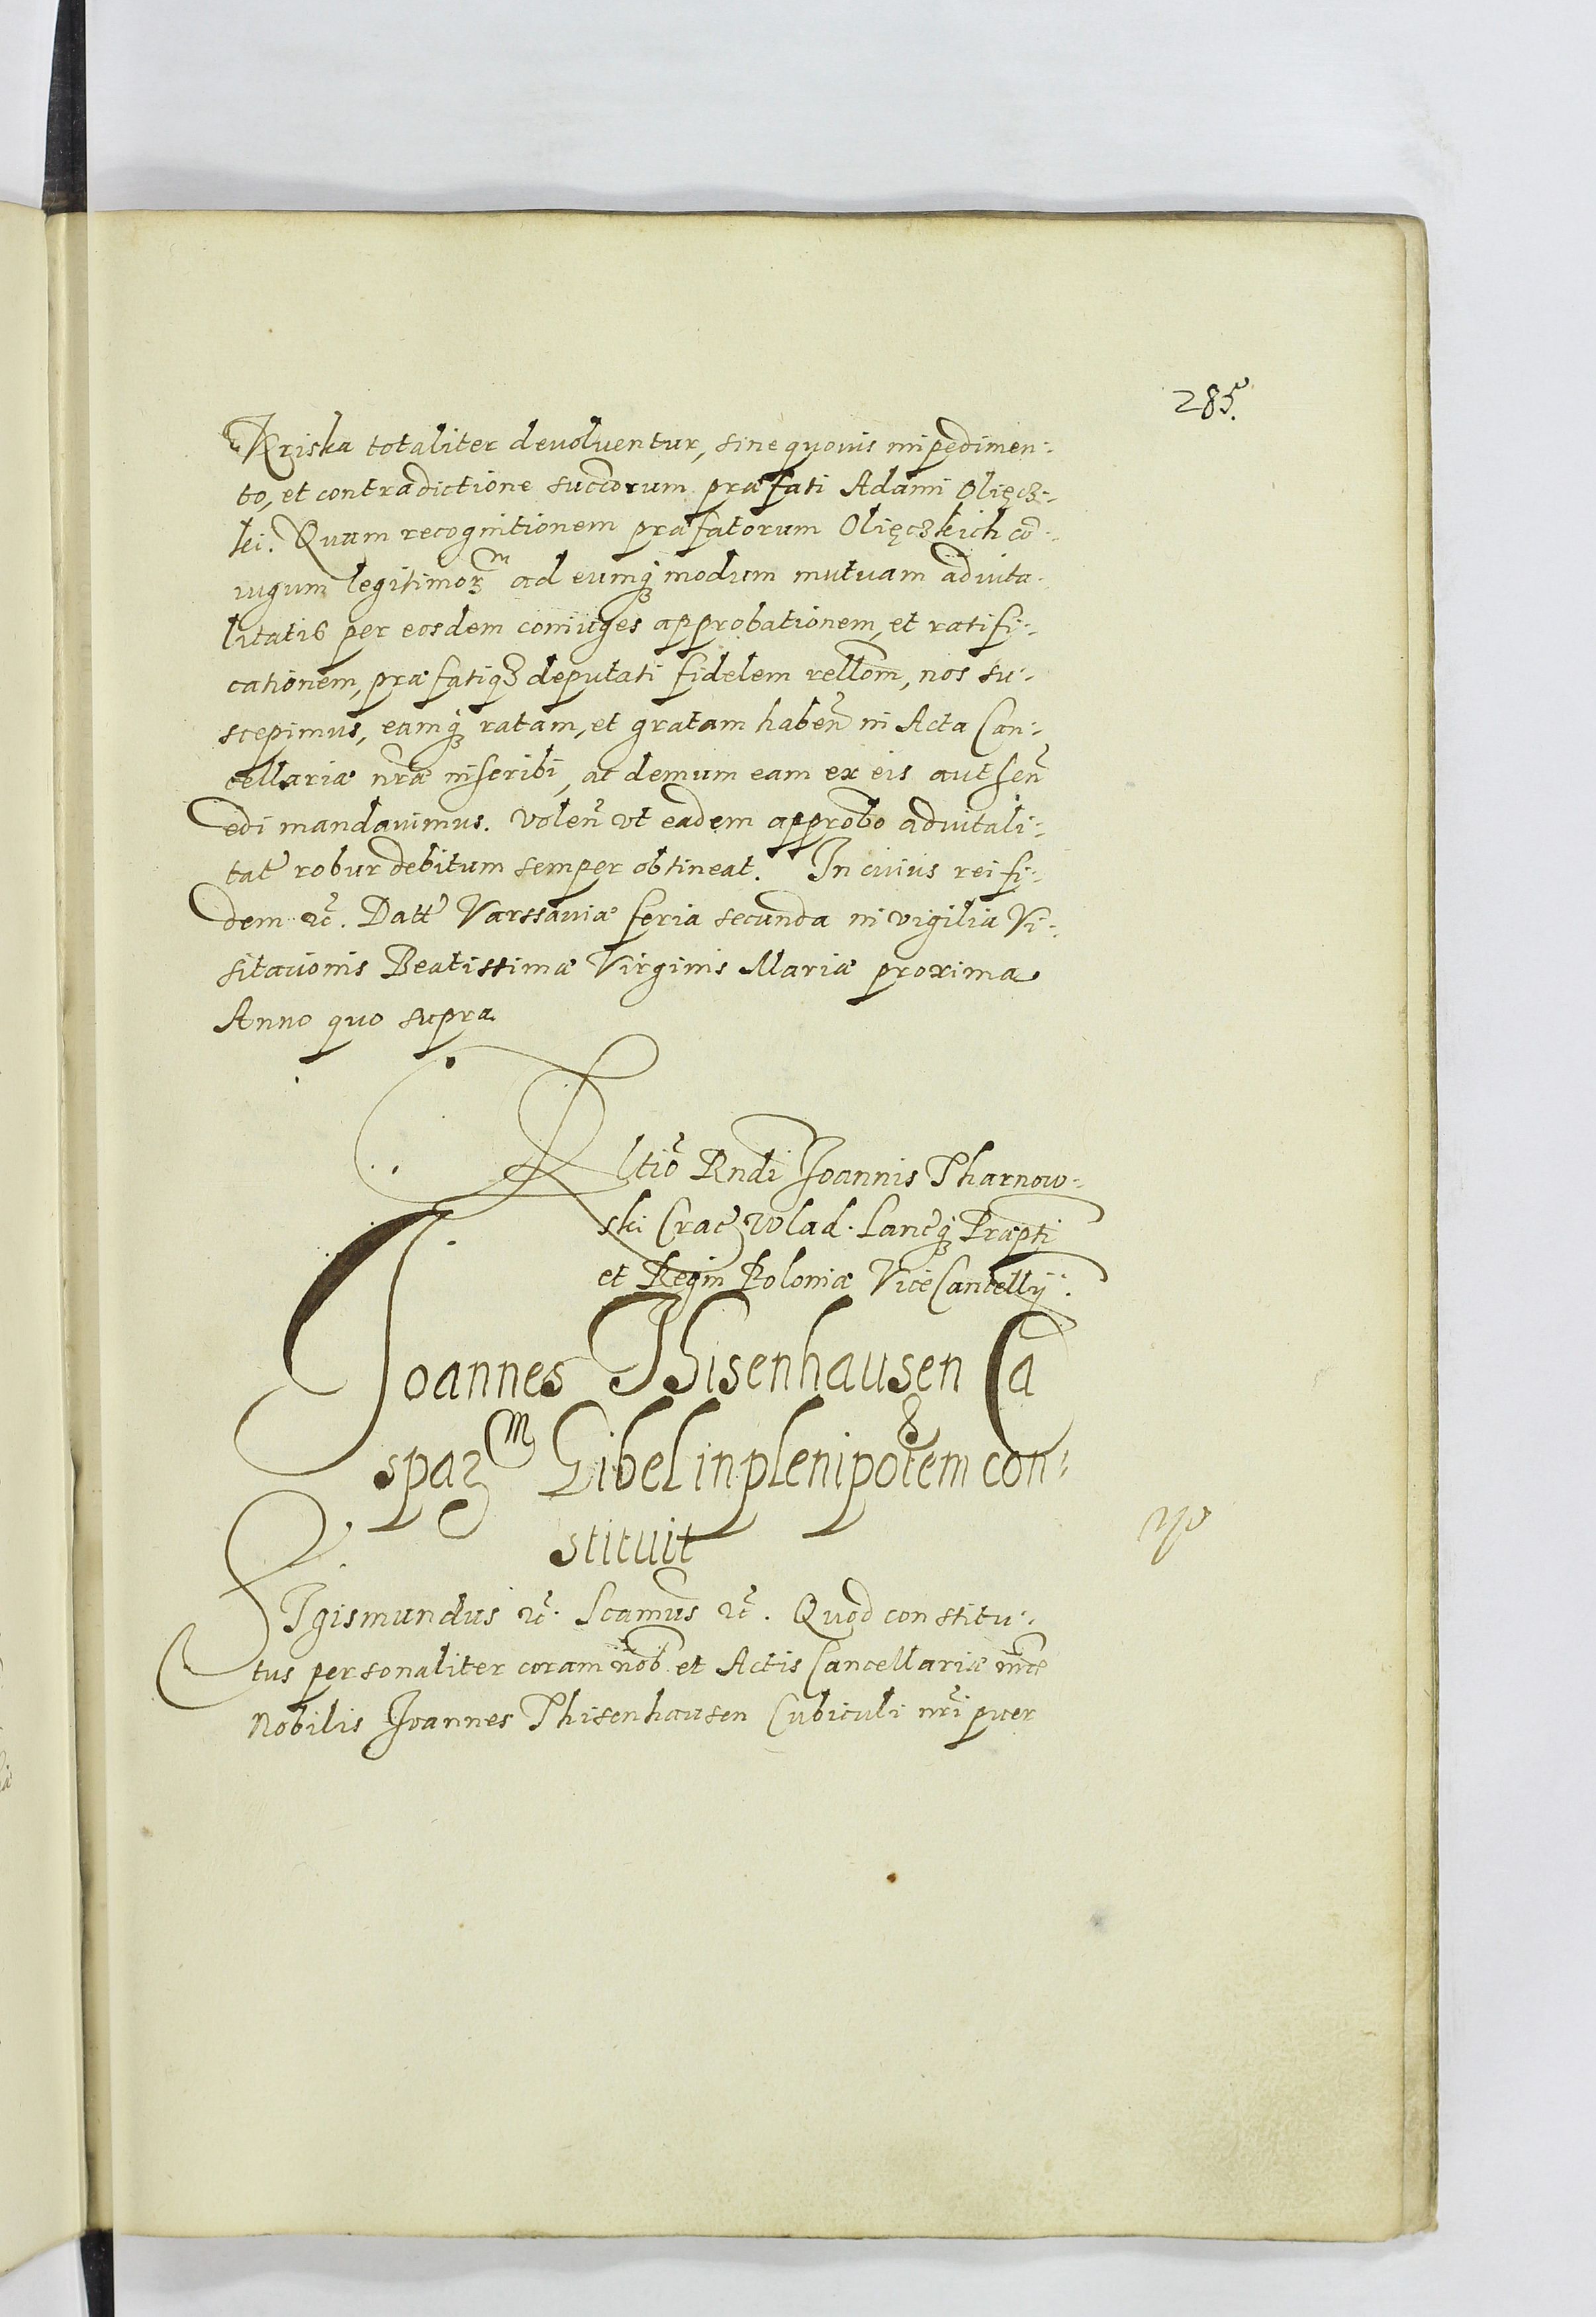 285.
Kriska totaliter devolventur, sine quovis impedimen-
to, et contradictione succorum præfati Adami Olięcz-
ki. Quam recognitionem præfatorum Olięczkich co-
iugum legitimorm ad eumq modum mutuam advita-
litatis per eosdem coniuges approbationem, et ratifi-
cationem, præfatiq deputati fidelem rellom, nos su-
scepimus, eamq ratam, et gratam haben in Acta Can-
cellariæ nræ inscribi, ac demum eam ex eis authen
edi mandavimus. Volen vt eadem approbo advitali-
tat robur debitum semper obtineat. In cuius rei fi-
dem etc. Datt Varssaviæ feria secunda in vigilia Vi-
sitationis Beatissimæ Virginis Mariæ proxima
Anno quo supra
Rltio Rndi Joannis Tharnow-
ski Crac Wlad. Lancq Præpti
et Regni Poloniæ ViceCancellij.
Joannes Thisenhausen Ca
sparm Gibel in plenipotem con-
stituit
Sigismundus etc. Scamus etc. Quod constitu-
tus personaliter coram nob et Actis Cancellariæ nræ
Nobilis Joannes Thisenhausen Cubiculi nri puer